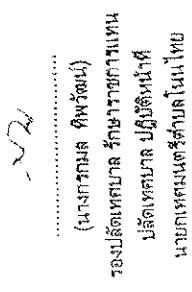 (นางกรกมล ทิพวัฒน์)
รองปลัดเทศบาล รักษาราชการแทน
ปลัดเทศบาล ปฏิบัติหน้าที่
นายกเทศมนตรีตำบลโนนไทย